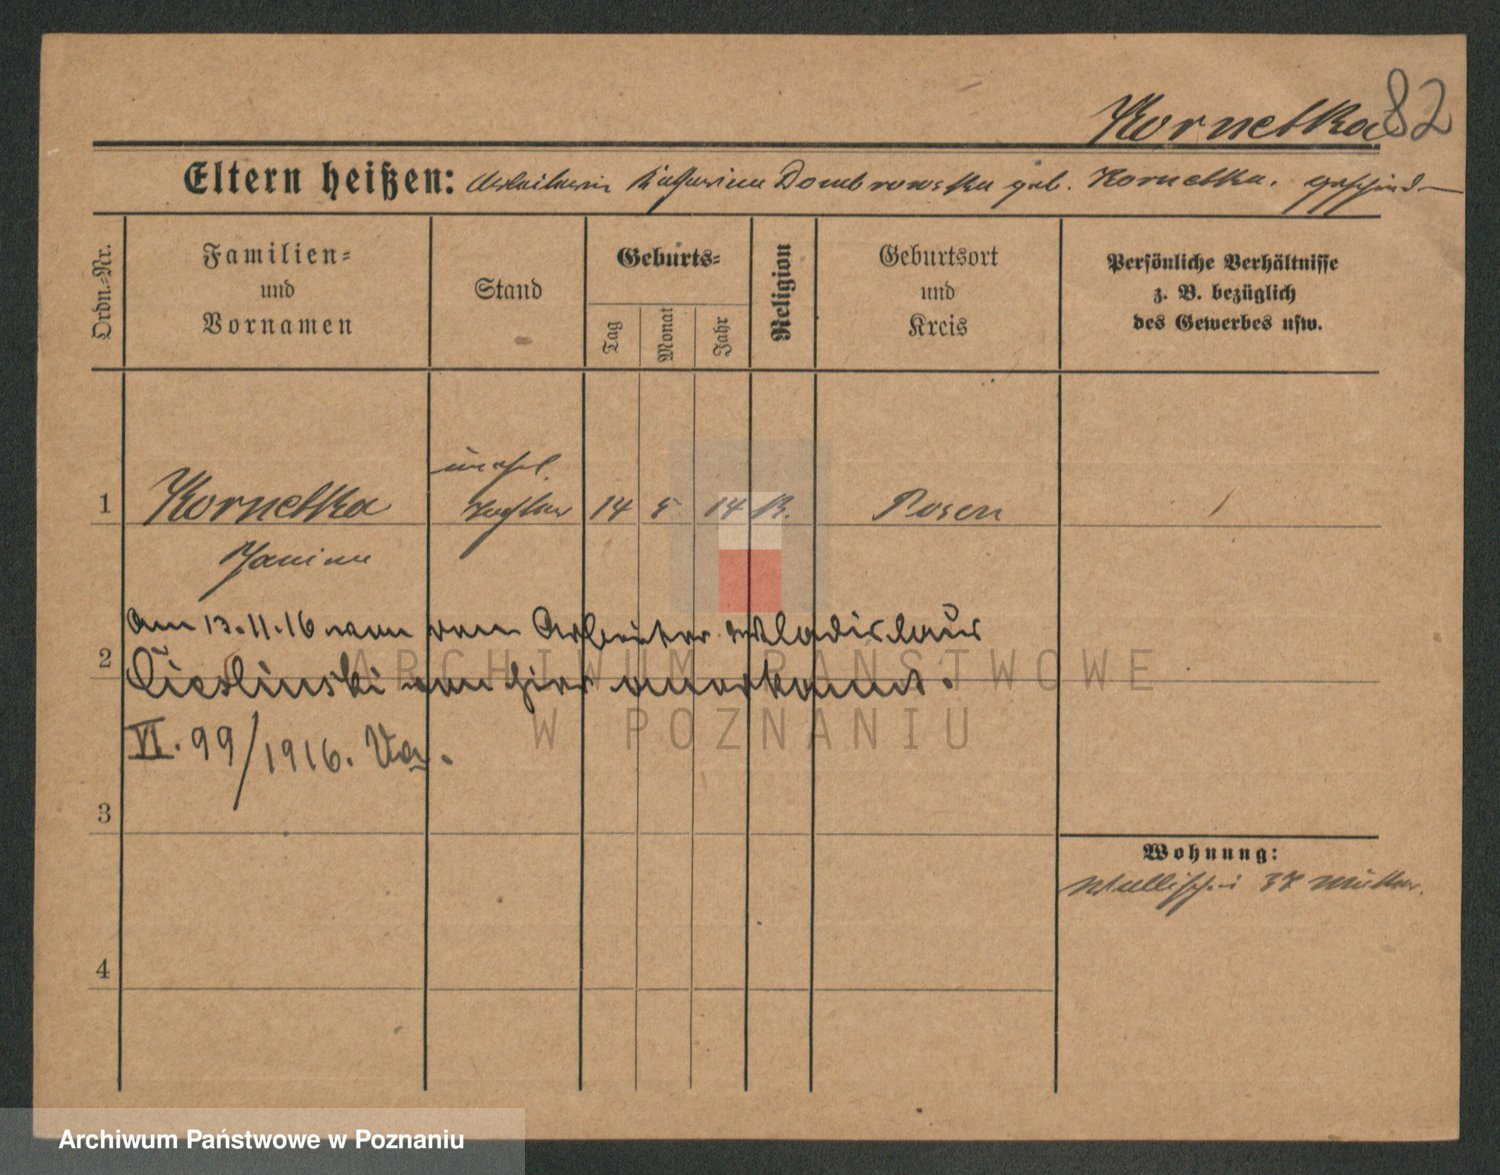 Kornetka 82
Eltern heißen: Arbeiterin Katharina Dombrowska geb. Kornetka.
Ordn.-Nr.
Familien-
und
Vornamen
Stand
Geburts-
Tag
Monat
Jahr
Religion
Geburtsort
und
Kreis
Persönliche Verhältnisse
z. B. bezüglich
des Gewerbes usw.
unehel.
1 Kornetka Tochter 14 5 14 K. Posen /
Janina
Am 13.11.16 vom Arbeiter Wladislaus
2
Cieslinski von hier anerkannt.
VI. 99/1916. Va.
3
Wohnung:
Wallischei 37 Mutter.
4
ARCHIWUM PAŃSTWOWE
W POZNANIU
Archiwum Państwowe w Poznaniu